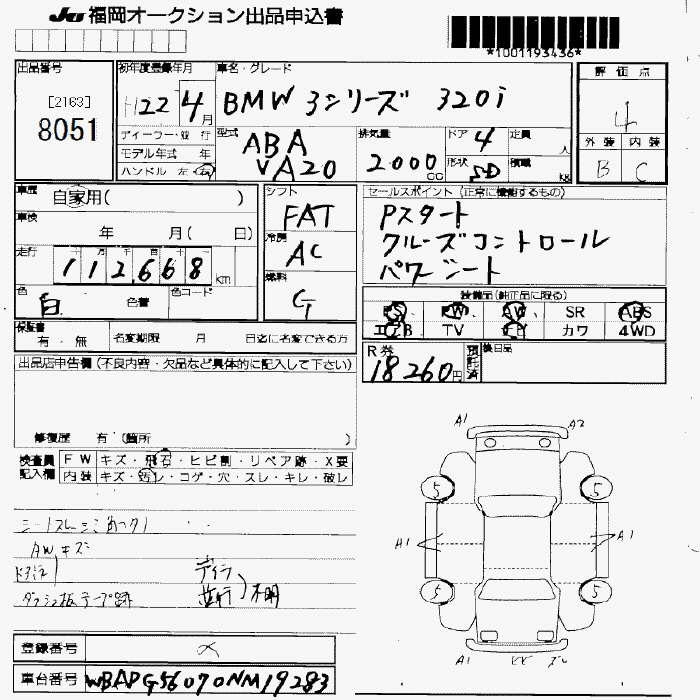 JU 福岡オークション出品申込書
*1001193436*
出品番号
[2163]
8051
初年度登録年月
H22 4月
ディーラー・並行
モデル年式 年
ハンドル 左 右
車名・グレード
BMW 3シリーズ 320i
型式
ABA
VA20
排気量
2.000 CC
ドア 4
定員 人
形状 SD
積載 kg
評価点
4
外装 内装
B C
車歴
自家用( )
車検
年 月( 日)
走行
112,668 km
色
白 色替
色コード
シフト
FAT
冷房
AC
燃料
G
セールスポイント (正常に機能するもの)
Pスタート
クルーズコントロール
パワーシート
装備品(純正品に限る)
PS PW AW SR ABS
エアB TV ナビ カワ 4WD
保証書
有・無
名変期限 月 日迄に名変できる方
R券
18260円
預託済
後日品
出品店申告欄 (不良内容・欠品など具体的に記入して下さい)
修復歴 有 (箇所 )
検査員記入欄
FW キズ・飛石・ヒビ割・リペア跡・X要
内装 キズ・汚レ・コゲ・穴・スレ・キレ・破レ
AWキズ
ダッシュ板テープ跡
ディラ
並行
不明
A1 A2
5 5
A1 A1
5 5
A1
登録番号
車台番号 WBAPG56070NM19283